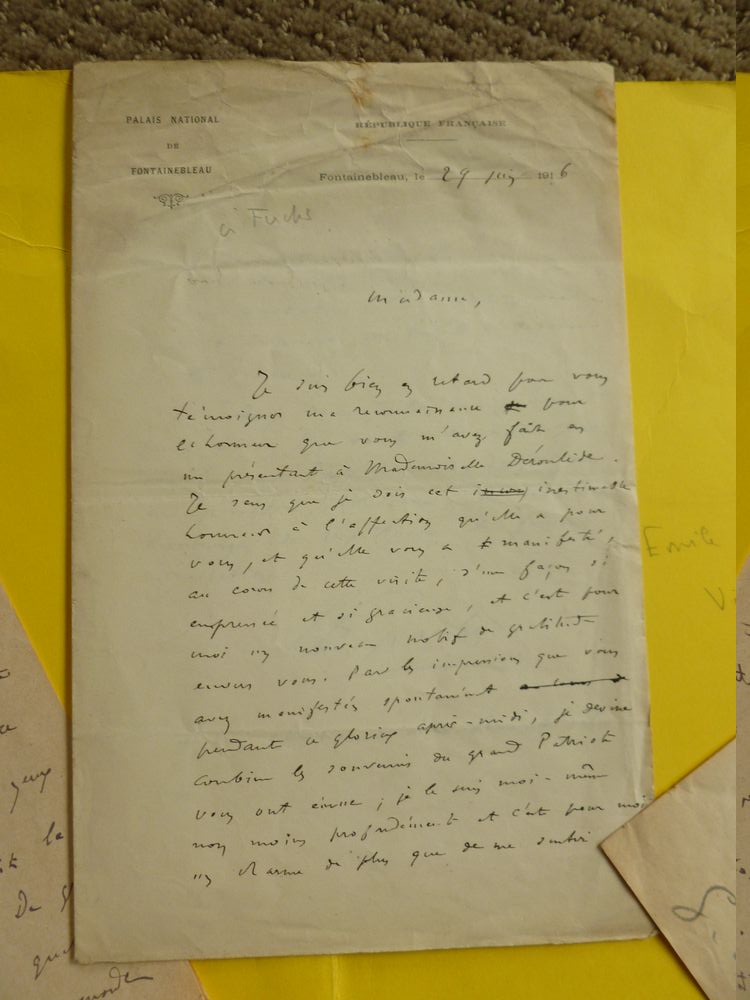 PALAIS NATIONAL
DE
FONTAINEBLEAU
RÉPUBLIQUE FRANÇAISE
Fontainebleau, le 29 juin 1916
à Fuchs
Madame,
Je suis bien en retard pour vous
témoigner ma reconnaissance pour
l'honneur que vous m'avez fait en
me présentant à Mademoiselle Déroulède.
Je sens que je dois cet inestimable
honneur à l'affection qu'elle a pour
vous, et qu'elle vous a manifesté,
au cours de cette visite, d'une façon si
empressée et si gracieuse, et c'est pour
moi un nouveau motif de gratitude
envers vous. Par les impressions que vous
avez manifestées spontanément
pendant ce glorieux après-midi, je devine
combien les souvenirs du grand Patriote
vous ont émue ; je le suis moi-même
non moins profondément et c'est pour moi
un charme de plus que de me sentir
Emile
Vi
yeux
la
De